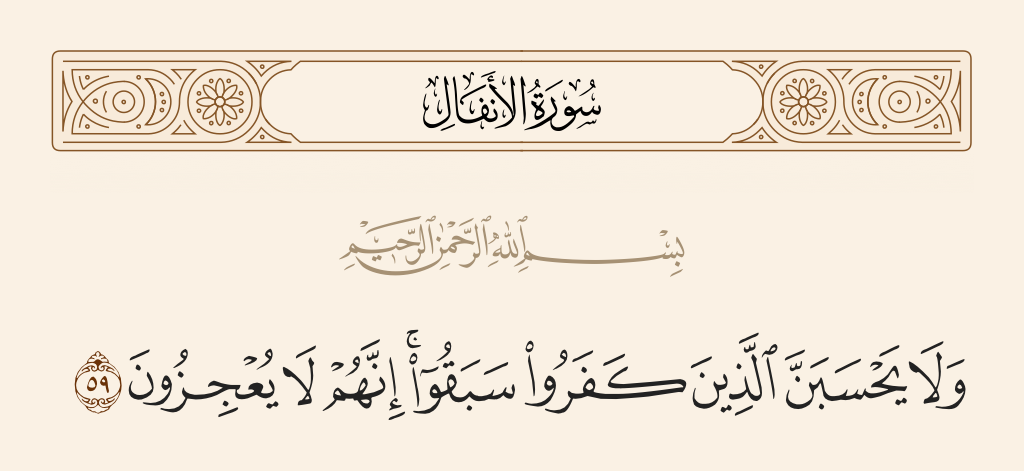 سُورَةُ الأَنفَالِ
بِسْمِ ٱللَّهِ ٱلرَّحْمَٰنِ ٱلرَّحِيمِ
وَلَا يَحْسَبَنَّ ٱلَّذِينَ كَفَرُوا۟ سَبَقُوٓا۟ ۚ إِنَّهُمْ لَا يُعْجِزُونَ ٥٩